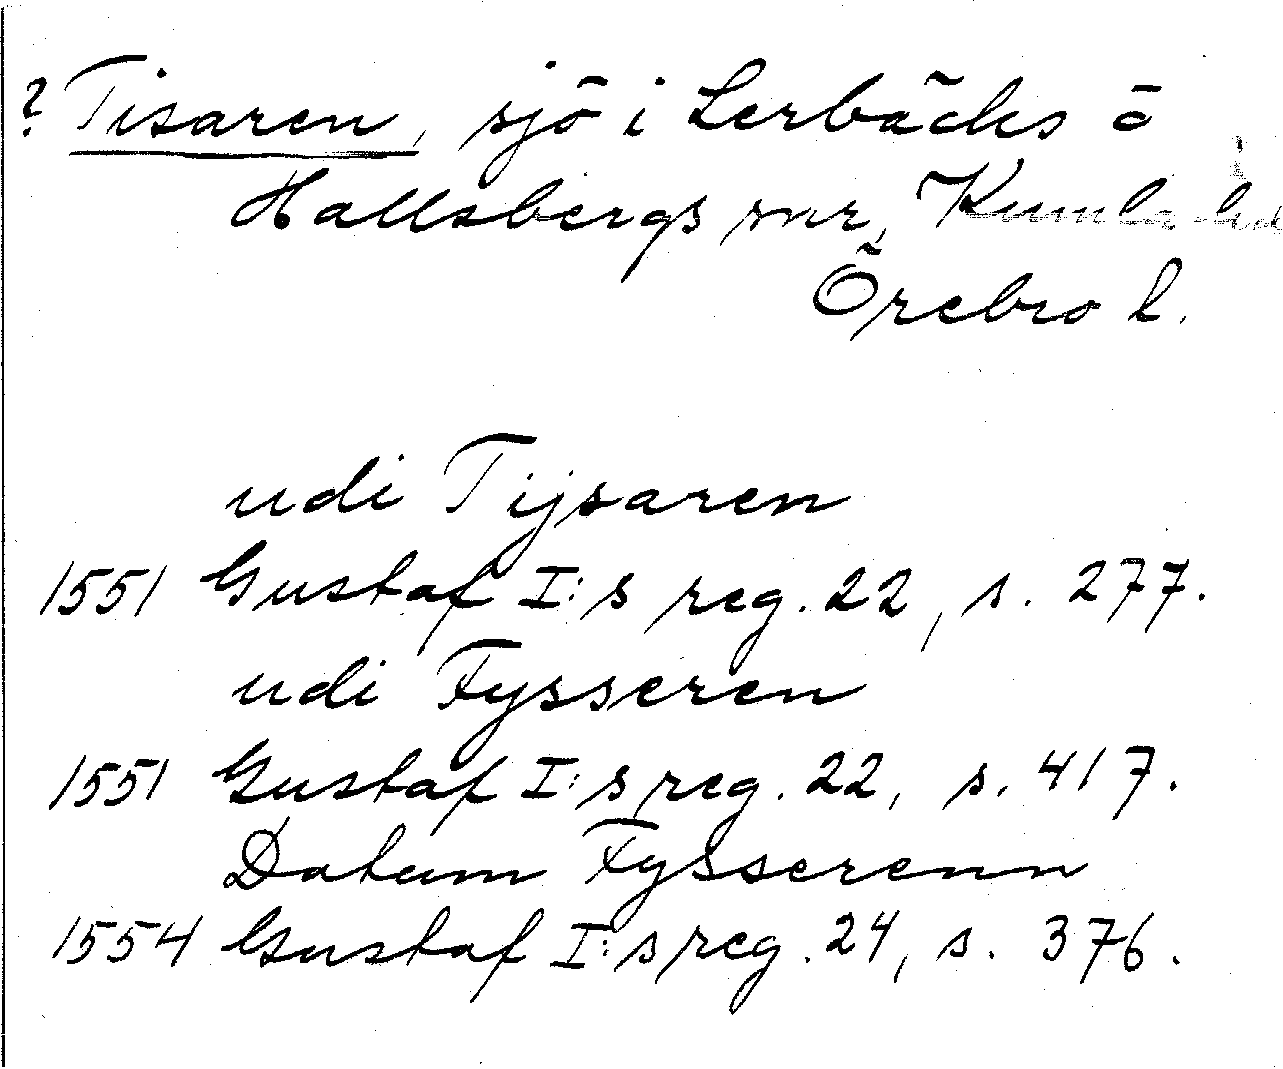 ? Tisaren, sjö i Lerbäcks o
Hallsbergs snr, Kumla hd
Örebro l.
udi Tijsaren
1551 Gustaf I:s reg. 22, s. 277.
udi Fysseren
1551 Gustaf I:s reg. 22, s. 417.
Datum Fysserenn
1554 Gustaf I:s reg. 24, s. 376.